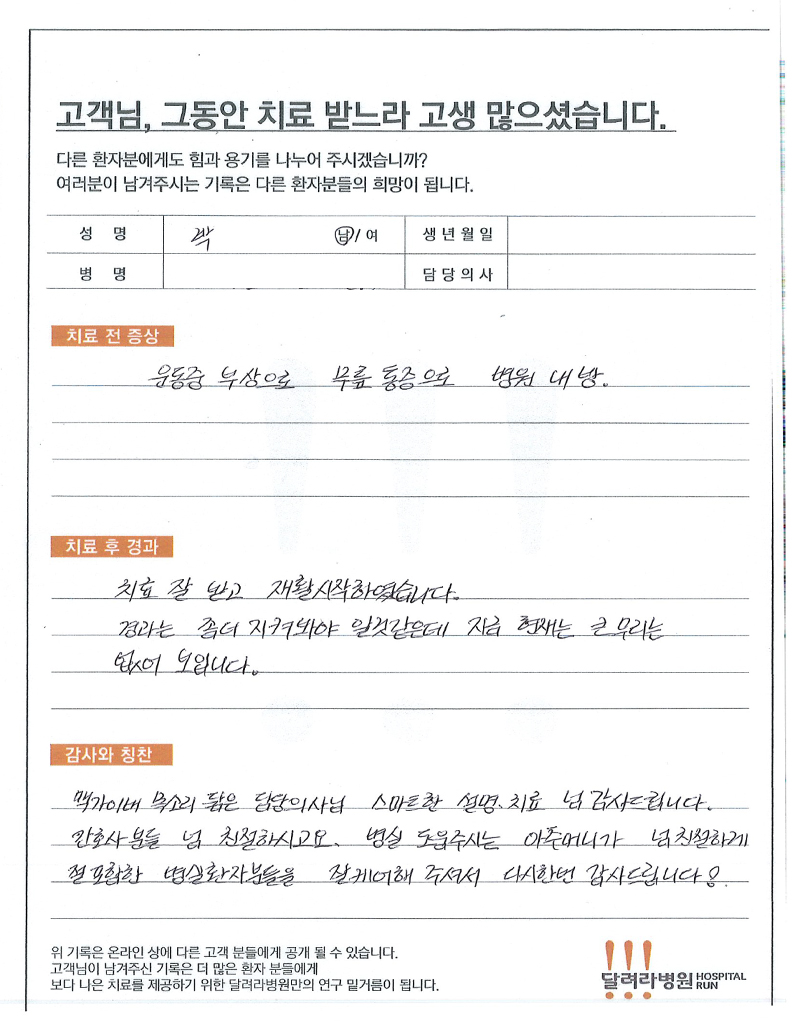 고객님, 그동안 치료 받느라 고생 많으셨습니다.
다른 환자분에게도 힘과 용기를 나누어 주시겠습니까?
여러분이 남겨주시는 기록은 다른 환자분들의 희망이 됩니다.
성 명 박 남/여 생년월일
병 명 담당의사
치료 전 증상
운동중 부상으로 무릎 통증으로 병원 내방.
치료 후 경과
치료 잘 받고 재활시작하였습니다.
경과는 좀더 지켜봐야 일것같은데 지금 현재는 큰무리는
없어 보입니다.
감사와 칭찬
맥가이버 목소리 닮은 담당의사님 스마트한 설명.치료 넘 감사드립니다.
간호사분들 넘 친절하시고요. 병실 도움주시는 아주머니가 넘친절하게
절 포함한 병실환자분들을 잘케어해 주셔서 다시한번 감사드립니다.
위 기록은 온라인 상에 다른 고객 분들에게 공개 될 수 있습니다.
고객님이 남겨주신 기록은 더 많은 환자 분들에게
보다 나은 치료를 제공하기 위한 달려라병원만의 연구 밑거름이 됩니다.
!!! 달려라병원 HOSPITAL RUN